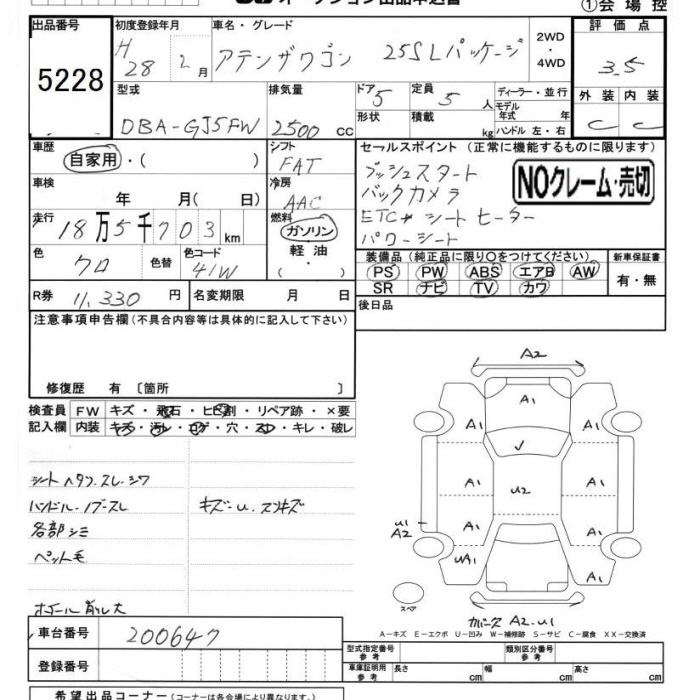 オークション出品申込書
①会場控
出品番号
5228
初度登録年月
H 28 2月
車名・グレード
アテンザワゴン 25SLパッケージ
2WD・4WD
評価点
3.5
型式
DBA-GJ5FW
排気量
2500cc
ドア
5
形状
定員
5人
積載
kg
ディーラー・並行
モデル年式 年
ハンドル 左・右
外装 内装
C C
車歴
自家用・( )
シフト
FAT
車検
年 月( 日)
冷房
AAC
走行
18万5千703km
燃料
ガソリン
軽油
・( )
色
クロ
色替
色コード
41W
R券 11,330円
名変期限 月 日
セールスポイント(正常に機能するものに限ります)
プッシュスタート
バックカメラ
ETC シートヒーター
パワーシート
NOクレーム・売切
装備品(純正品に限り○をつけてください。)
新車保証書
PS PW ABS エアB AW
SR ナビ TV カワ
有・無
後日品
注意事項申告欄(不具合内容等は具体的に記入して下さい)
修復歴 有 〔箇所 〕
検査員記入欄
FW キズ・飛石・ヒビ割・リペア跡・×要
内装 キズ・汚レ・コゲ・穴・スレ・キレ・破レ
シートヘタリ.スレ.シワ
ハンドル.ノブスレ
各部シミ
ペット毛
キズ-U.スリキズ
ホイール削レ大
A2
A1
A1 A1
✓
A1 U2 A1
U1
A2
A1 A1
UA1 A1
A1
スペア
A2-U1
A-キズ E-エクボ U-凹み W-補修跡 S-サビ C-腐食 XX-交換済
車台番号
200647
登録番号
型式指定番号
参考
類別区分番号
参考
車庫証明用
参考
長さ cm 幅 cm 高さ cm
希望出品コーナー(コーナーは各会場により異なります。)